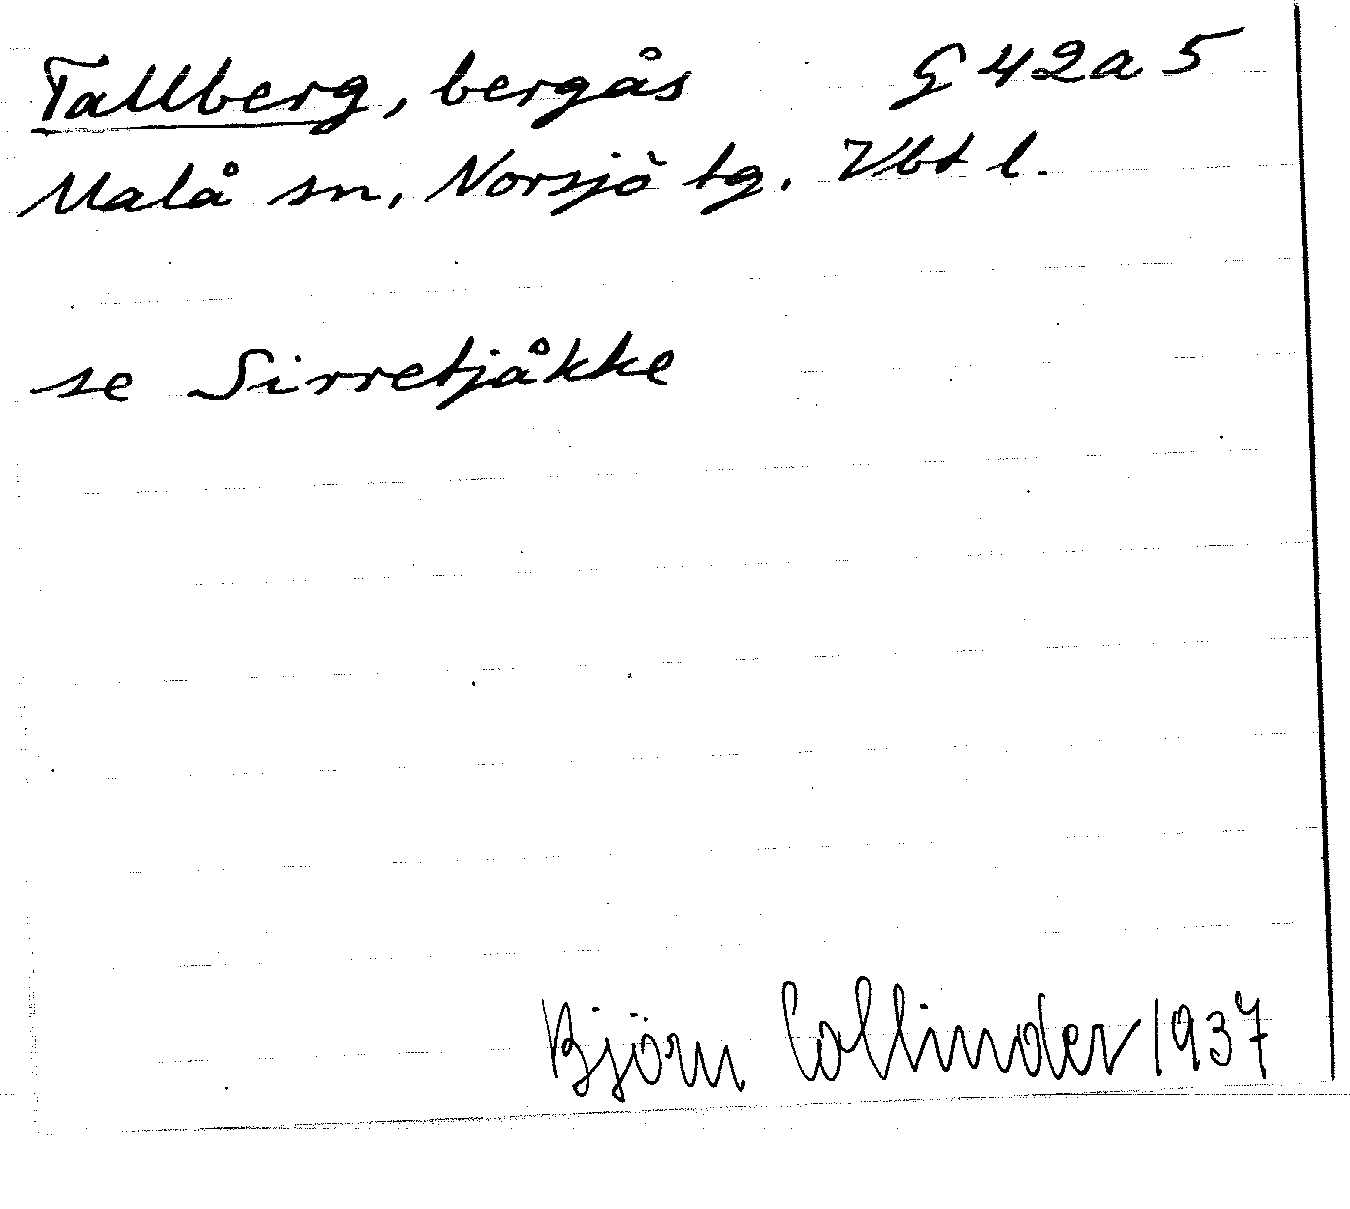 Tallberg, bergås G 42a 5
Malå sn, Norsjö tg, Vbt l.
se Sirretjåkke
Björn Collinder 1937